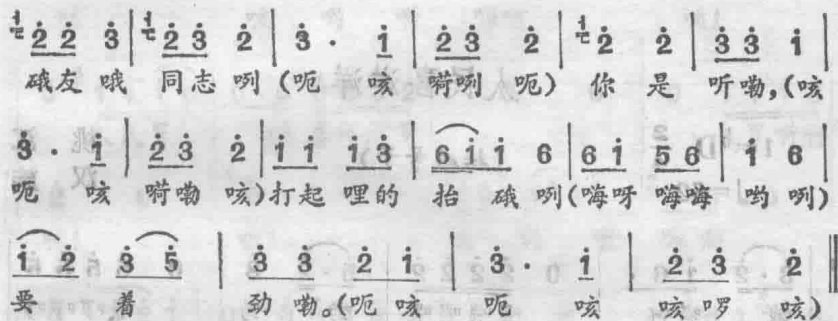 2̇ 2̇ 3̇ 2̇ 3̇ 2̇ | 3̇ · i̇ | 2̇ 3̇ 2̇ | 2̇ 2̇ | 3̇ 3̇ i̇
硪友哦 同志咧(呃 咳 嗬咧 呃) 你 是 听嘞,(咳
3̇ · i̇ | 2̇ 3̇ 2̇ | i̇ i̇ i̇ 3̇ | 6 i̇ i̇ 6 | 6 i̇ 5 6 | i̇ 6
呃 咳 嗬嘞 咳)打起 哩的 抬 硪 咧(嗨呀 嗨嗨 哟 咧)
i̇ 2̇ 3̇ 5̇ | 3̇ 3̇ 2̇ i̇ | 3̇ · i̇ | 2̇ 3̇ 2̇ ‖
要 着 劲 嘞。(呃 咳 呃 咳 咳啰 咳)